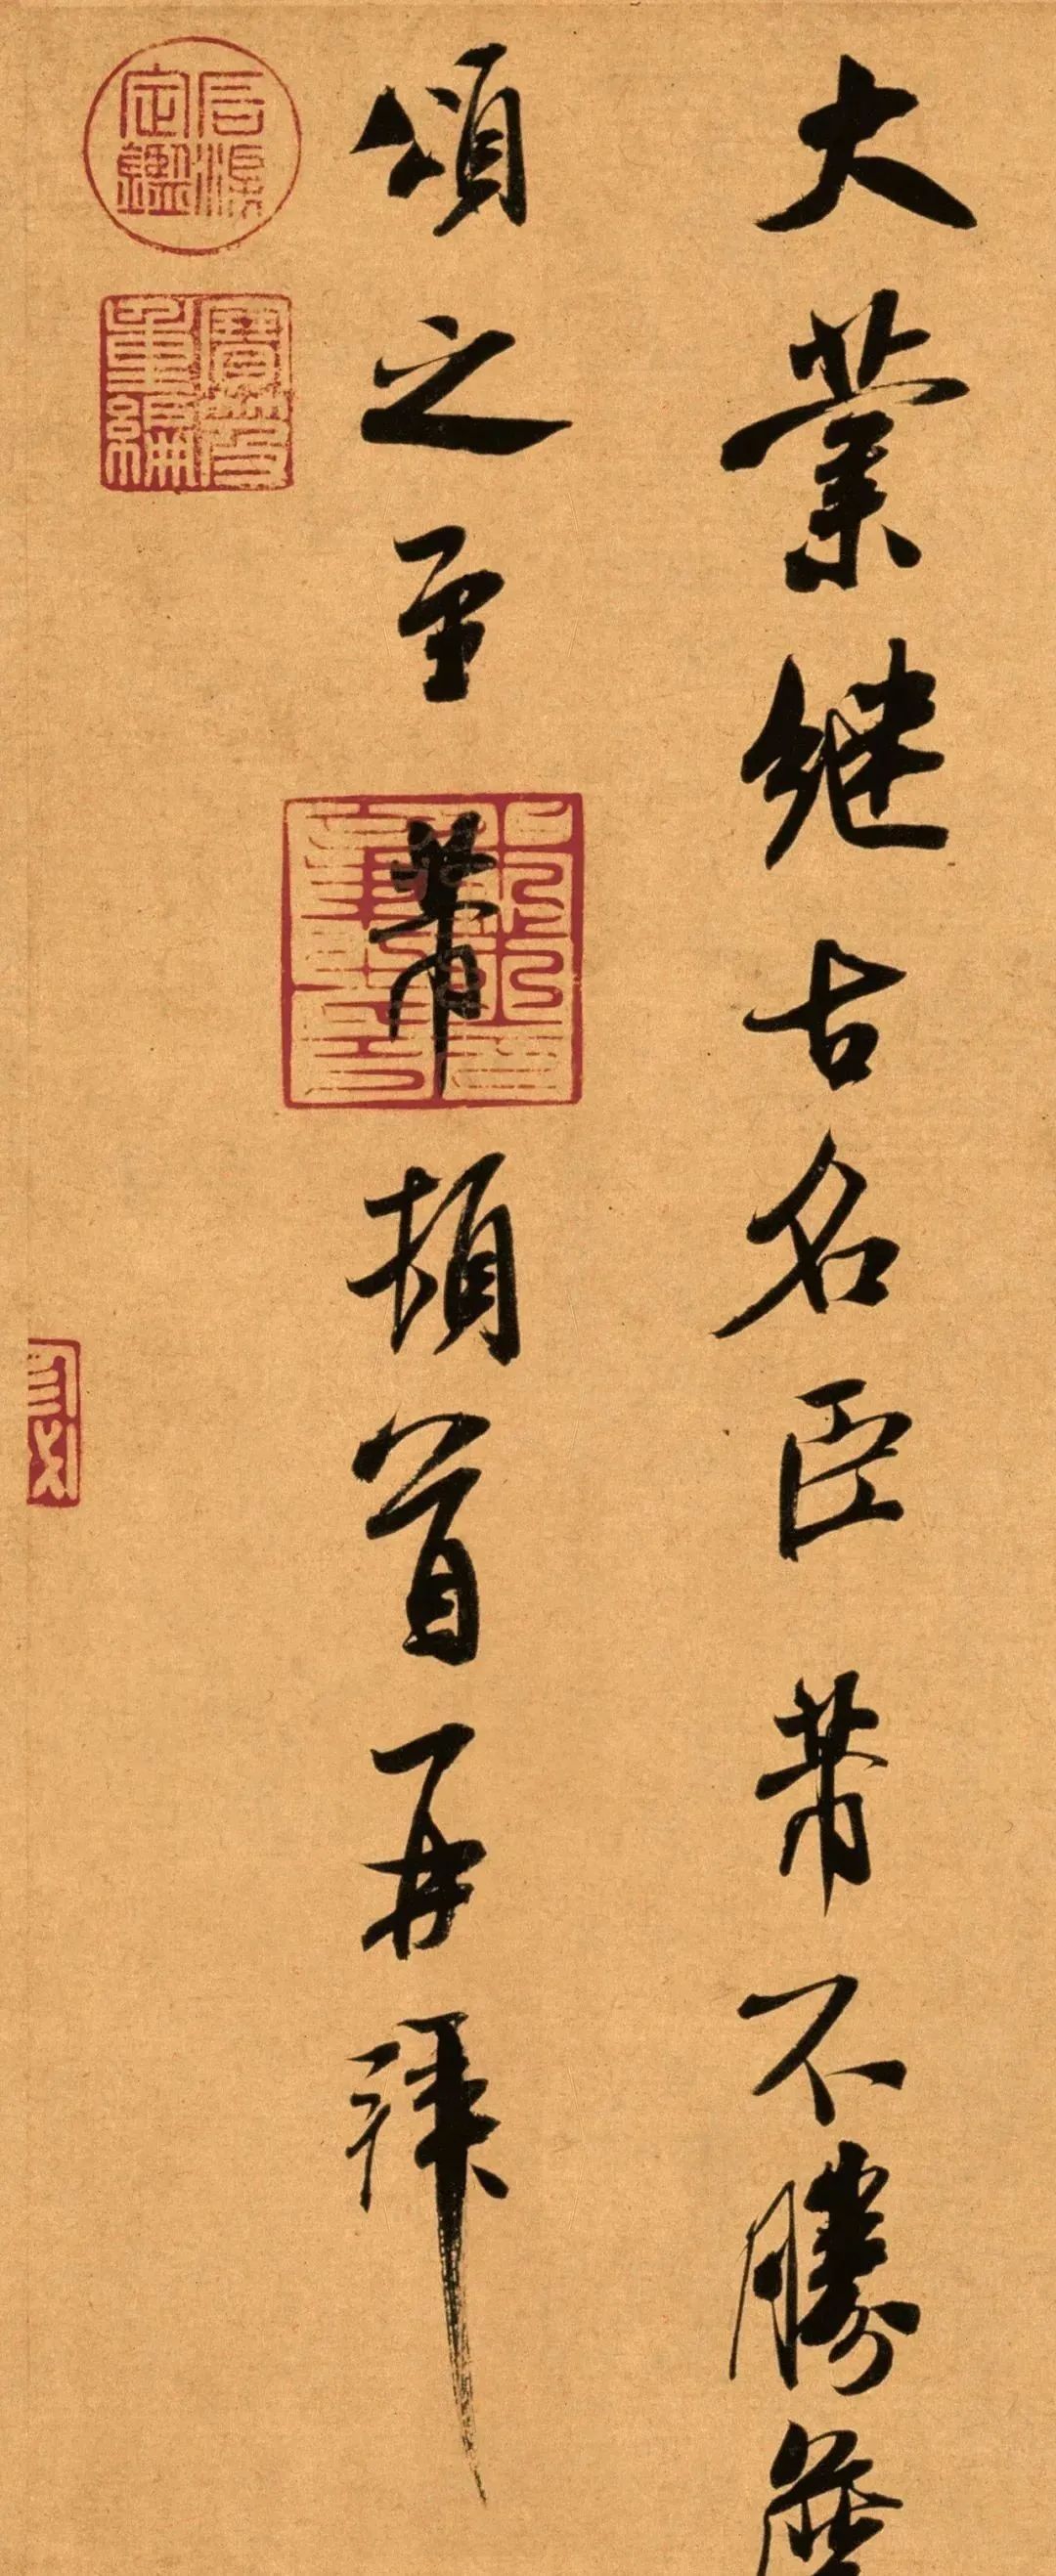 大業繼古名臣芾不勝
頌之至芾頓首再拜
石渠定鑑
寶笈重編